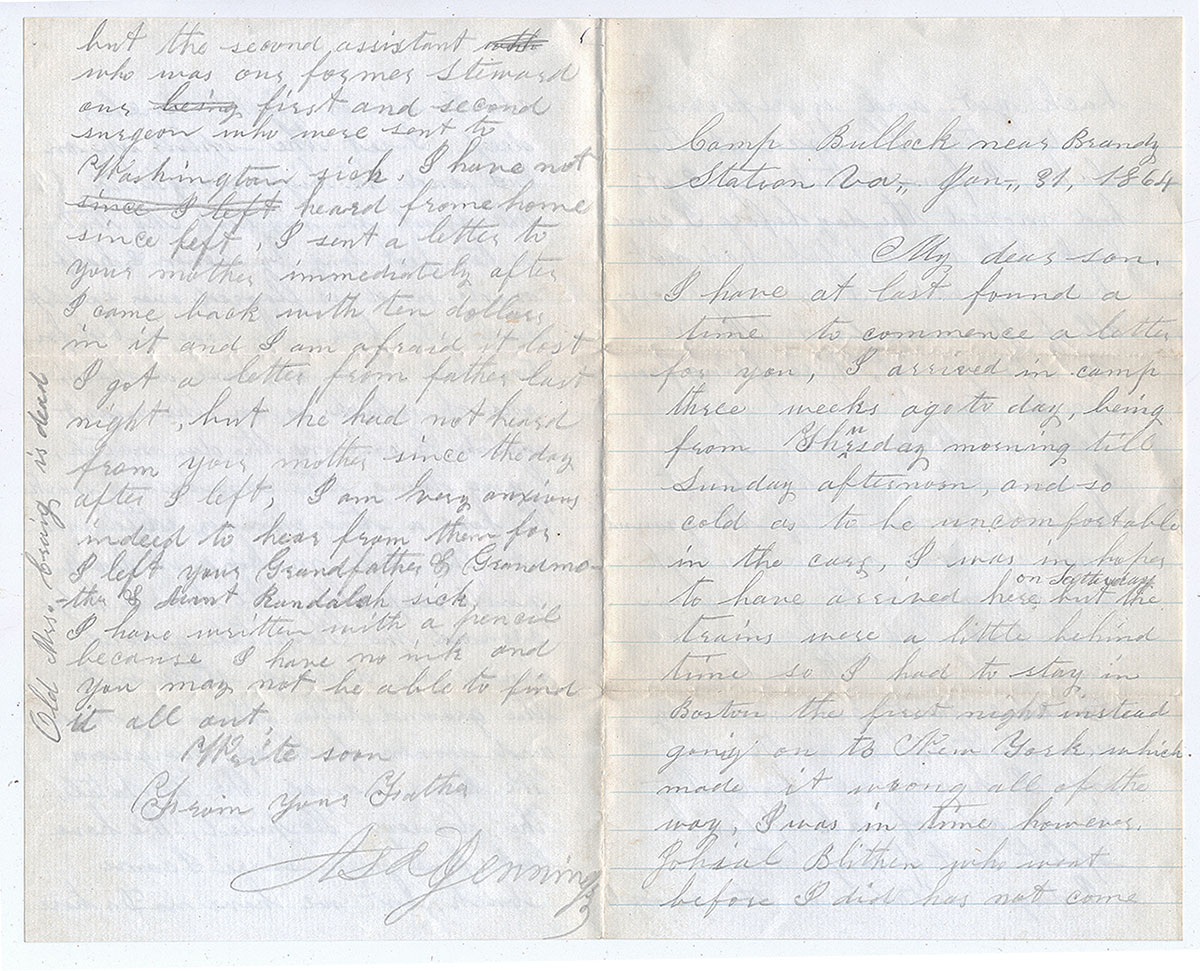 Camp Bullock near Brandy
Station Va,. Jan-, 31, 1864
My dear son.
I have at last found a
time to commence a letter
for you, I arrived in camp
three weeks ago to day, being
from Thursday morning till
Sunday afternoon, and so
cold as to be uncomfortable
in the cars, I was in hopes
to have arrived here on Satterday, but the
trains were a little behind
time so I had to stay in
Boston the first night instead
going on to New York, which
made it wrong all of the
way, I was in time however.
Blithen who went
before I did has not come
but the second assistant
who was our former Steward
our being first and second
surgeon who were sent to
Washington sick. I have not
since I left heard frome home
since left, I sent a letter to
your mother immediately after
I came back with ten dollars
in it and I am afraid it lost
I got a letter from father last
night, but he had not heard
from your mother since the day
after I left, I am very anxious
indeed to hear from them for.
I left your Grandfather & Grandmo-
-ther & Aunt Randalah sick,
I have written with a pencil
because I have no ink and
you may not be able to find
it all out
Write soon
From your Father
Asa Jennings
Old Mrs. Craig is dead